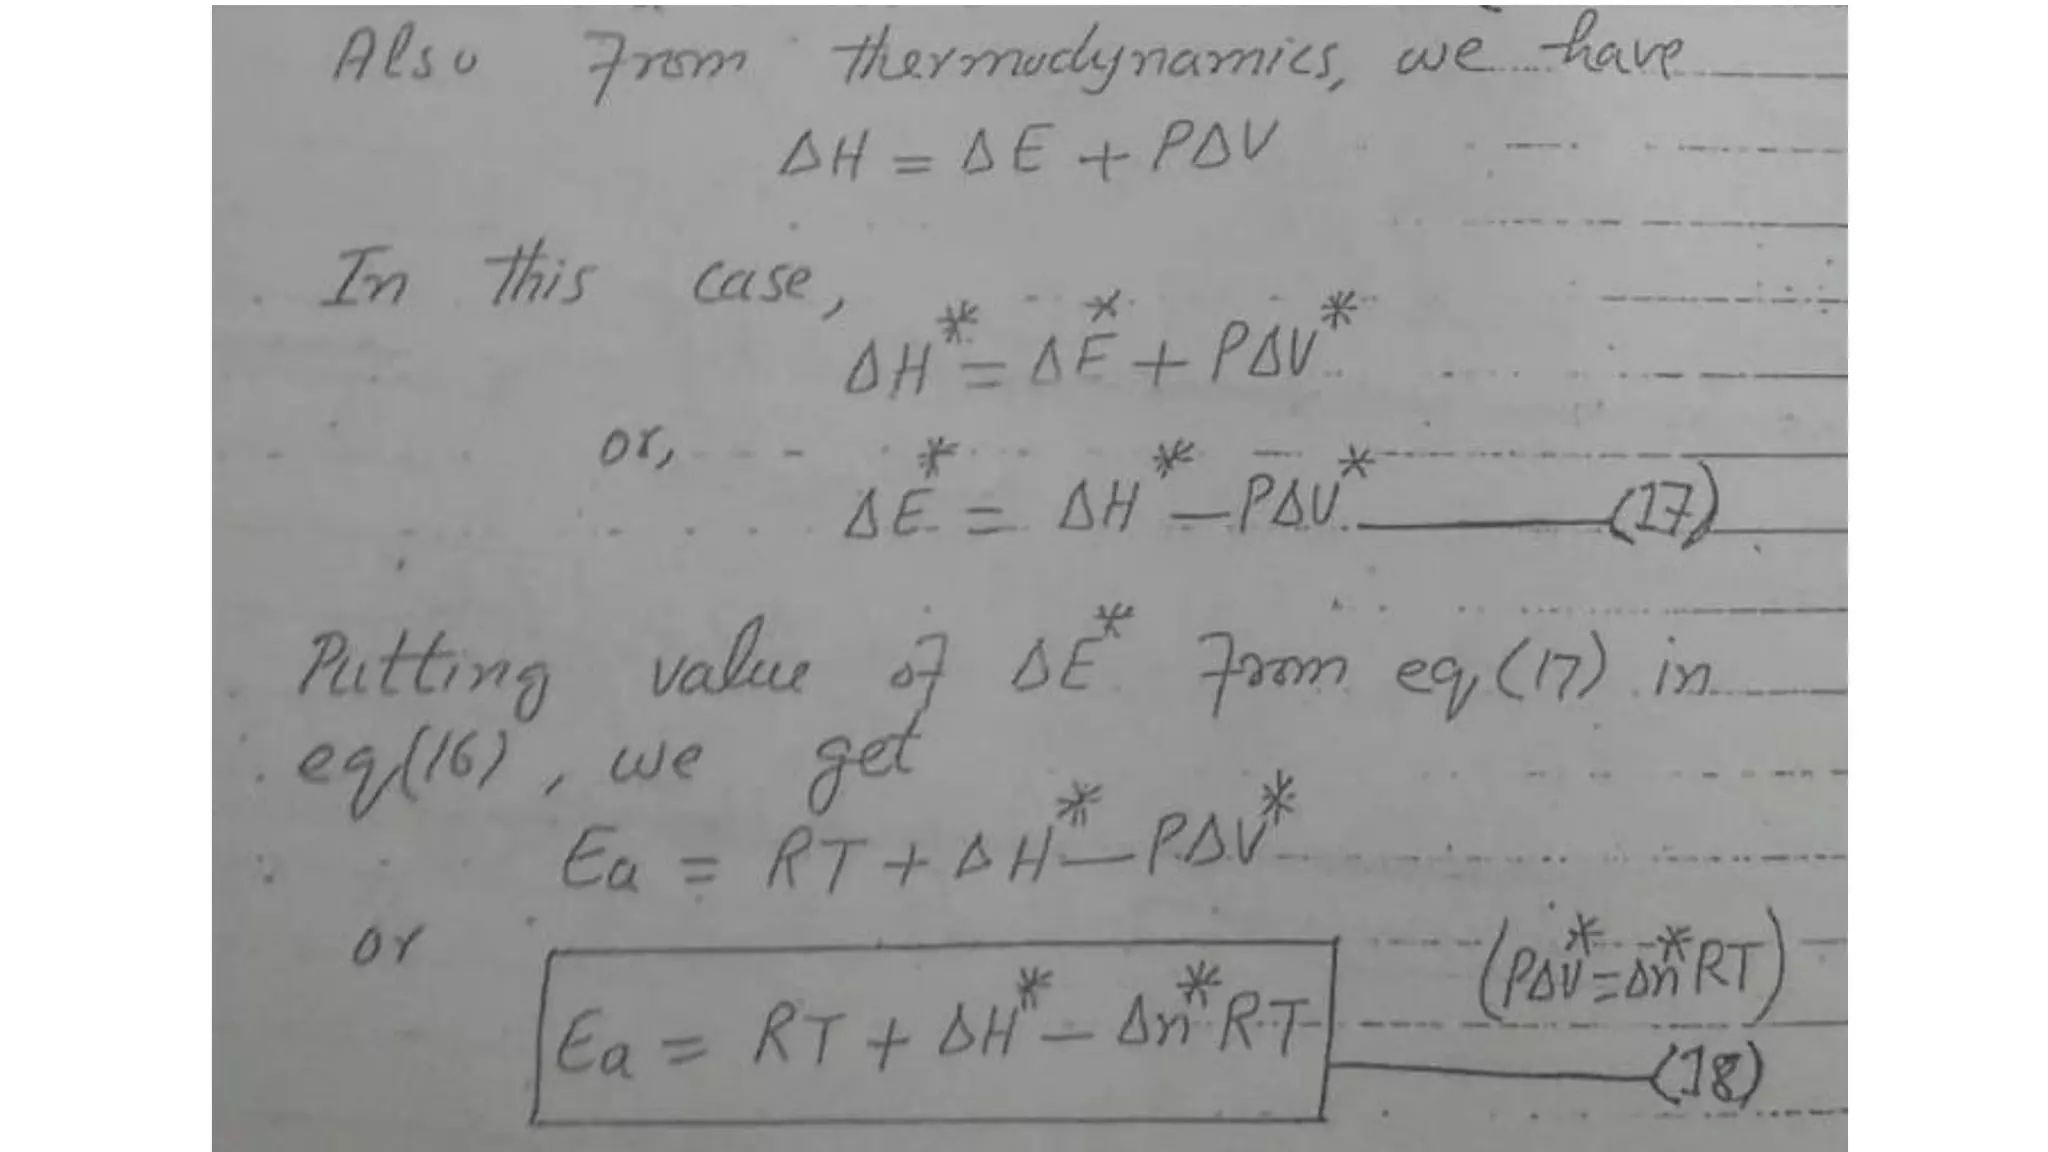 Also from thermodynamics, we have
ΔH = ΔE + PΔV
In this case,
ΔH* = ΔE* + PΔV*
or,
ΔE* = ΔH* — PΔV* ——— (17)
Putting value of ΔE* from eq(17) in
eq(16), we get
Ea = RT + ΔH* — PΔV*
or
(PΔV* = Δn*RT)
Ea = RT + ΔH* — Δn*RT ——— (18)